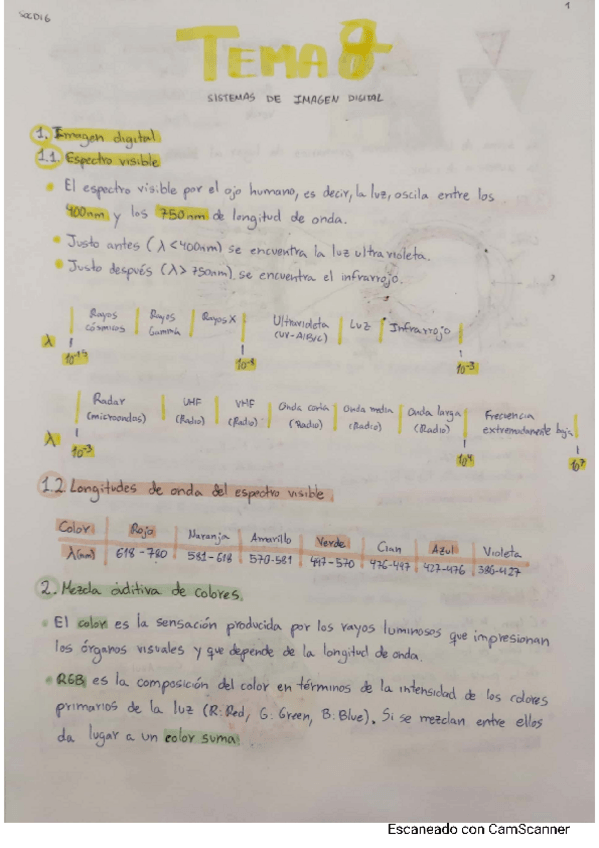 SOCDI6
1
TEMA 8
SISTEMAS DE IMAGEN DIGITAL
1. Imagen digital
1.1 Espectro visible
El espectro visible por el ojo humano, es decir, la luz, oscila entre los
400nm y los 750nm de longitud de onda.
Justo antes (λ<400nm) se encuentra la luz ultravioleta.
Justo después (λ>750nm) se encuentra el infrarrojo.
Rayos cósmicos | Rayos Gamma | Rayos X | Ultravioleta (UV-A/B/C) | Luz | Infrarrojo
λ 10⁻¹⁵ 10⁻⁸ 10⁻³
Radar (microondas) | UHF (Radio) | VHF (Radio) | Onda corta (Radio) | Onda media (Radio) | Onda larga (Radio) | Frecuencia extremadamente baja
λ 10⁻³ 10⁴ 10⁷
1.2. Longitudes de onda del espectro visible
Color | Rojo | Naranja | Amarillo | Verde | Cian | Azul | Violeta
λ(nm) | 618-780 | 581-618 | 570-581 | 497-570 | 476-497 | 427-476 | 380-427
2. Mezcla aditiva de colores.
El color es la sensación producida por los rayos luminosos que impresionan
los órganos visuales y que depende de la longitud de onda.
RGB es la composición del color en términos de la intensidad de los colores
primarios de la luz (R: Red, G: Green, B: Blue). Si se mezclan entre ellos
da lugar a un color suma.
Escaneado con CamScanner